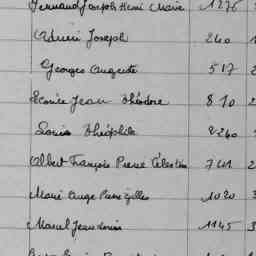 Fernand Joseph Henri Marie 1276
Adrien Joseph 240
Georges Auguste 517 2
Désirée Jean Théodore 810 2
Louis Théophile 2240
Albert François Pierre Célestin 741 2
Marie Ange Pierre Gilles 1020 3
Marcel Jean Louis 1145 3